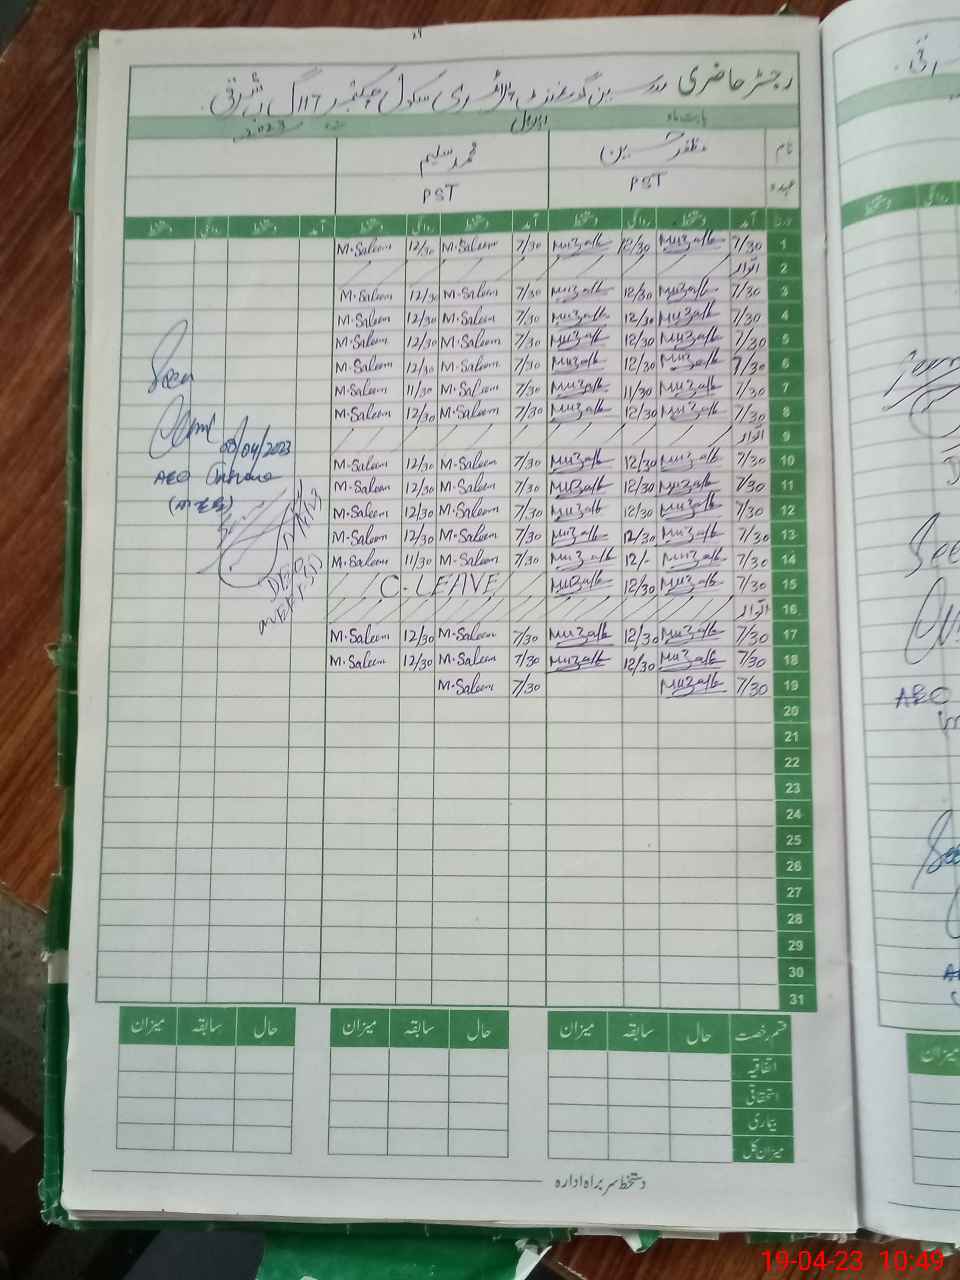 رجسٹر حاضری مدرسین گورنمنٹ سکول چکنمبر 117
بابت ماہ اپریل سنہ 2023
نام مظفر حسین محمد سلیم
عہدہ PST PST
تاریخ آمد دستخط روانگی دستخط آمد دستخط روانگی دستخط آمد دستخط روانگی دستخط
1 7/30 Muzaffar 12/30 Muzaffar 7/30 M.Saleem 12/30 M.Saleem
2 اتوار
3 7/30 Muzaffar 12/30 Muzaffar 7/30 M.Saleem 12/30 M.Saleem
4 7/30 Muzaffar 12/30 Muzaffar 7/30 M.Saleem 12/30 M.Saleem
5 7/30 Muzaffar 12/30 Muzaffar 7/30 M.Saleem 12/30 M.Saleem
6 7/30 Muzaffar 12/30 Muzaffar 7/30 M.Saleem 12/30 M.Saleem
7 7/30 Muzaffar 11/30 Muzaffar 7/30 M.Saleem 11/30 M.Saleem
8 7/30 Muzaffar 12/30 Muzaffar 7/30 M.Saleem 12/30 M.Saleem
9 اتوار
10 7/30 Muzaffar 12/30 Muzaffar 7/30 M.Saleem 12/30 M.Saleem
11 7/30 Muzaffar 12/30 Muzaffar 7/30 M.Saleem 12/30 M.Saleem
12 7/30 Muzaffar 12/30 Muzaffar 7/30 M.Saleem 12/30 M.Saleem
13 7/30 Muzaffar 12/30 Muzaffar 7/30 M.Saleem 12/30 M.Saleem
14 7/30 Muzaffar 12/- Muzaffar 7/30 M.Saleem 11/30 M.Saleem
15 7/30 Muzaffar 12/30 Muzaffar C-LEAVE
16 اتوار
17 7/30 Muzaffar 12/30 Muzaffar 7/30 M.Saleem 12/30 M.Saleem
18 7/30 Muzaffar 12/30 Muzaffar 7/30 M.Saleem 12/30 M.Saleem
19 7/30 Muzaffar 7/30 M.Saleem
20
21
22
23
24
25
26
27
28
29
30
31
Seen
/04/2023
AEO
DEO
(M-EE)
قسم رخصت حال سابقہ میزان حال سابقہ میزان حال سابقہ میزان
اتفاقیہ
استحقاقی
بیماری
میزان کل
دستخط سربراہ ادارہ
See
AEO
See
میزان
19-04-23 10:49